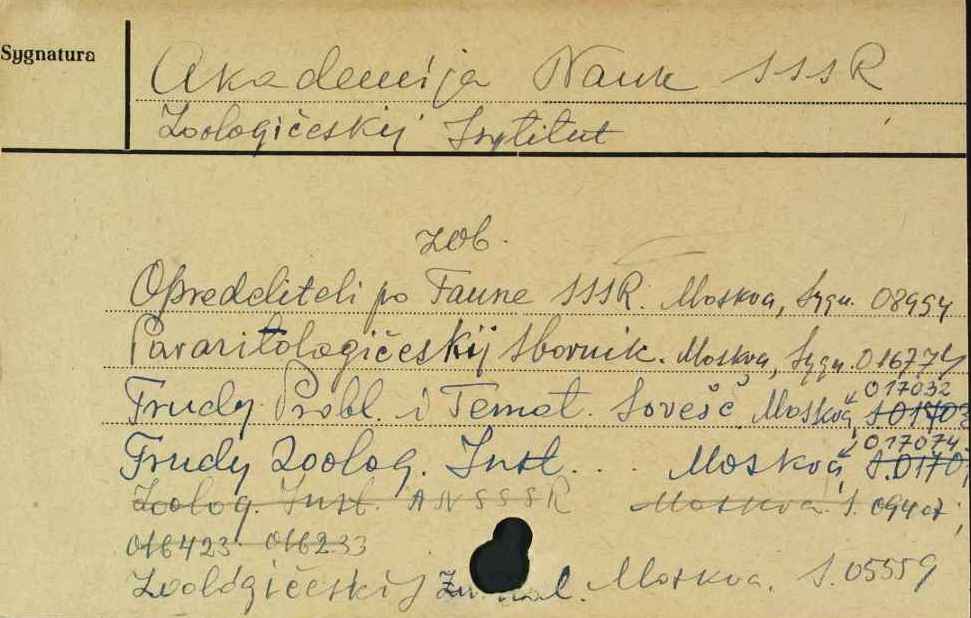 Sygnatura
Akademija Nauk SSSR
Zoologičeskij Instytut
zob.
Opredeliteli po Faune SSSR. Moskva, Sygn. 08954
Parazitologičeskij Sbornik. Moskva, Sygn. 016774
017032
Trudy Probl. i Temat. Sovešč. Moskva, S 01703
017074
Trudy Zoolog. Inst... Moskva, S. 0170
Zoolog. Inst. AN SSSR Moskva. S.
016423 016233
Zoologičeskij Moskva. S. 05559